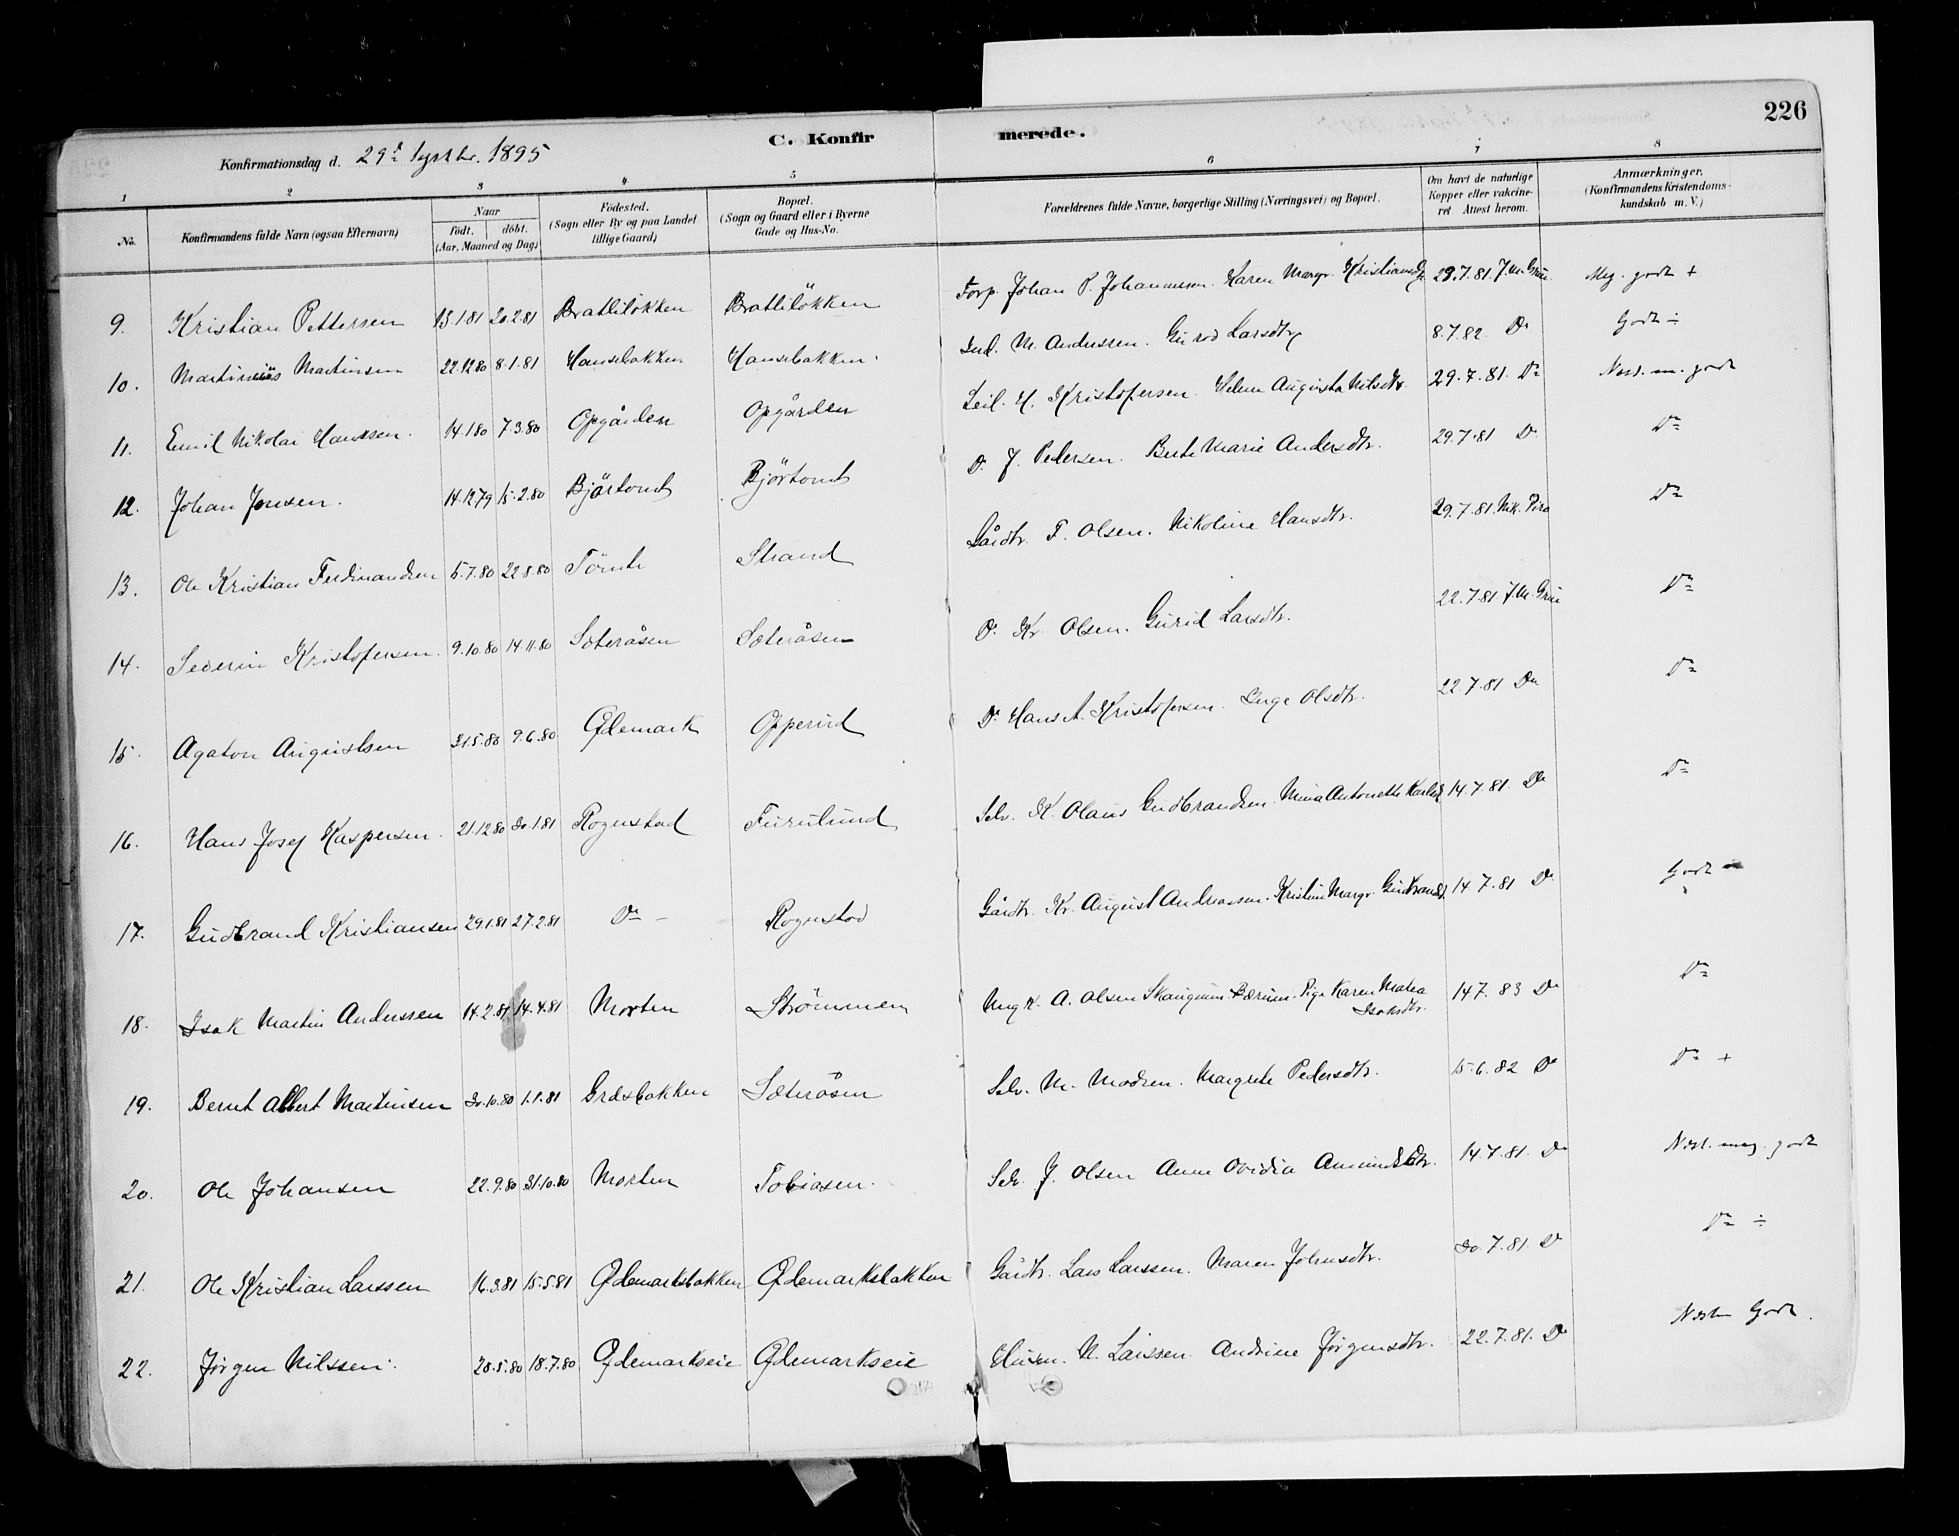 226
C. Konfirmerede.
Konfirmationsdag d. 29d Septbr. 1895
1 2 3 4 5 6 7 8
No. Konfirmandens fulde Navn (ogsaa Efternavn) Naar født. døbt. (Aar, Maaned og Dag) Fødested. (Sogn eller By og paa Landet tillige Gaard) Bopæl. (Sogn og Gaard eller i Byerne Gade og Hus-No. Forældrenes fulde Navne, borgerlige Stilling (Næringsvei) og Bopæl. Om havt de naturlige Kopper eller vakcineret. Attest herom. Anmærkninger. (Konfirmandens Kristendomskundskab m. V.)
9. Kristian Pettersen 13.1.81 20.2.81 Brattiløkken Brattiløkken Forp. Johan P. Johannesen. Karen Margr. Kristiansdtr 29.7.81 J.M. Grüe Meg. godt +
10. Martinius Martinsen 22.12.80 8.1.81 Hansebakken Hansebakken. Ind. M. Anderssen. Guród Larsdtr 8.7.82 Do Godt ÷
11. Emil Nikolai Hanssen. 14.1.80 7.3.80 Opgården Opgården Leil. H. Kristofersen. Helene Augusta Nilsdtr. 29.7.81. Do Næst. m. godt
12. Johan Jonsen. 14.12.79 15.2.80 Bjørtomt Bjørtomt Do. J. Pedersen. Berte Marie Andersdtr. 29.7.81 Do. Do
13. Ole Kristian Ferdinandsen 5.7.80 22.8.80 Tömte Strand Gårdbr. F. Olsen. Nikoline Hansdtr. 29.7.81. Do
14. Severin Kristofersen. 9.10.80 14.11.80 Sæteråsen Sæteråsen Do. Kr. Olsen. Gurid Larsdtr. 22.7.81 J.M. Grüe Do
15. Agaton Augustsen 31.5.80 9.6.80 Ødemark Opperud Do. Hans A. Kristofersen. Inge Olsdtr. 22.7.81 Do Do
16. Hans Josef Kaspersen. 21.12.80 30.1.81 Rognstad Furulund Selv. K. Olaus Gudbrandsen. Mina Antonette 14.7.81. Do Do
17. Gudbrand Kristiansen 29.1.81 27.2.81 Do - Rognstad Gårdbr. Kr. August Andreassen. Kristine Margr. Gudbrandsd. 14.7.81 Do Godt
18. Isak Martin Anderssen 14.2.81 14.4.81 Morten Strömmen Ungk. A. Olsen Skaugum. Bærum. Pige Karen Matea Isaksdtr. 14.7.83 Do Do
19. Bernt Albert Martinsen 30.10.80 1.1.81 Græsbakken Sæteråsen Selv. M. Madsen. Margrete Pedersdtr. 15.6.82 Do Do +
20. Ole Johansen 22.9.80 31.10.80 Morten Tobiasen. Selv. J. Olsen Anne Ovidia Amundsdtr. 14.7.81. Do Næst. meg. godt
21. Ole Kristian Larssen 16.3.81 15.5.81 Ødemarksbakken Ødemarksbakken Gårdbr. Lars Larssen. Maren Johnsdtr. 30.7.81. Do Do ÷
22. Jörgen Nilssen. 28.5.80 18.7.80 Ødemarkseie Ødemarkseie Husm. N. Larssen Andrine Jörgensdtr. 22.7.81. Do Næsten Godt.